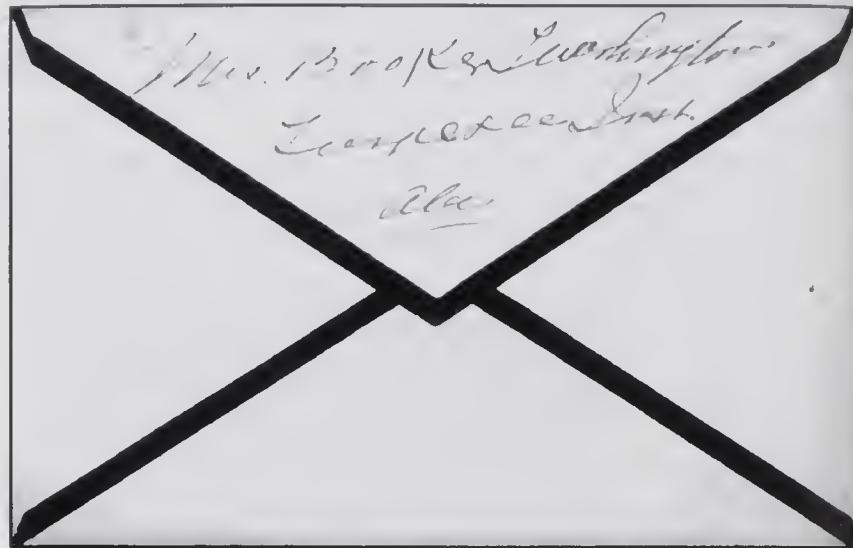 Mrs. Booker T Washington
Tuskegee Inst.
Ala.